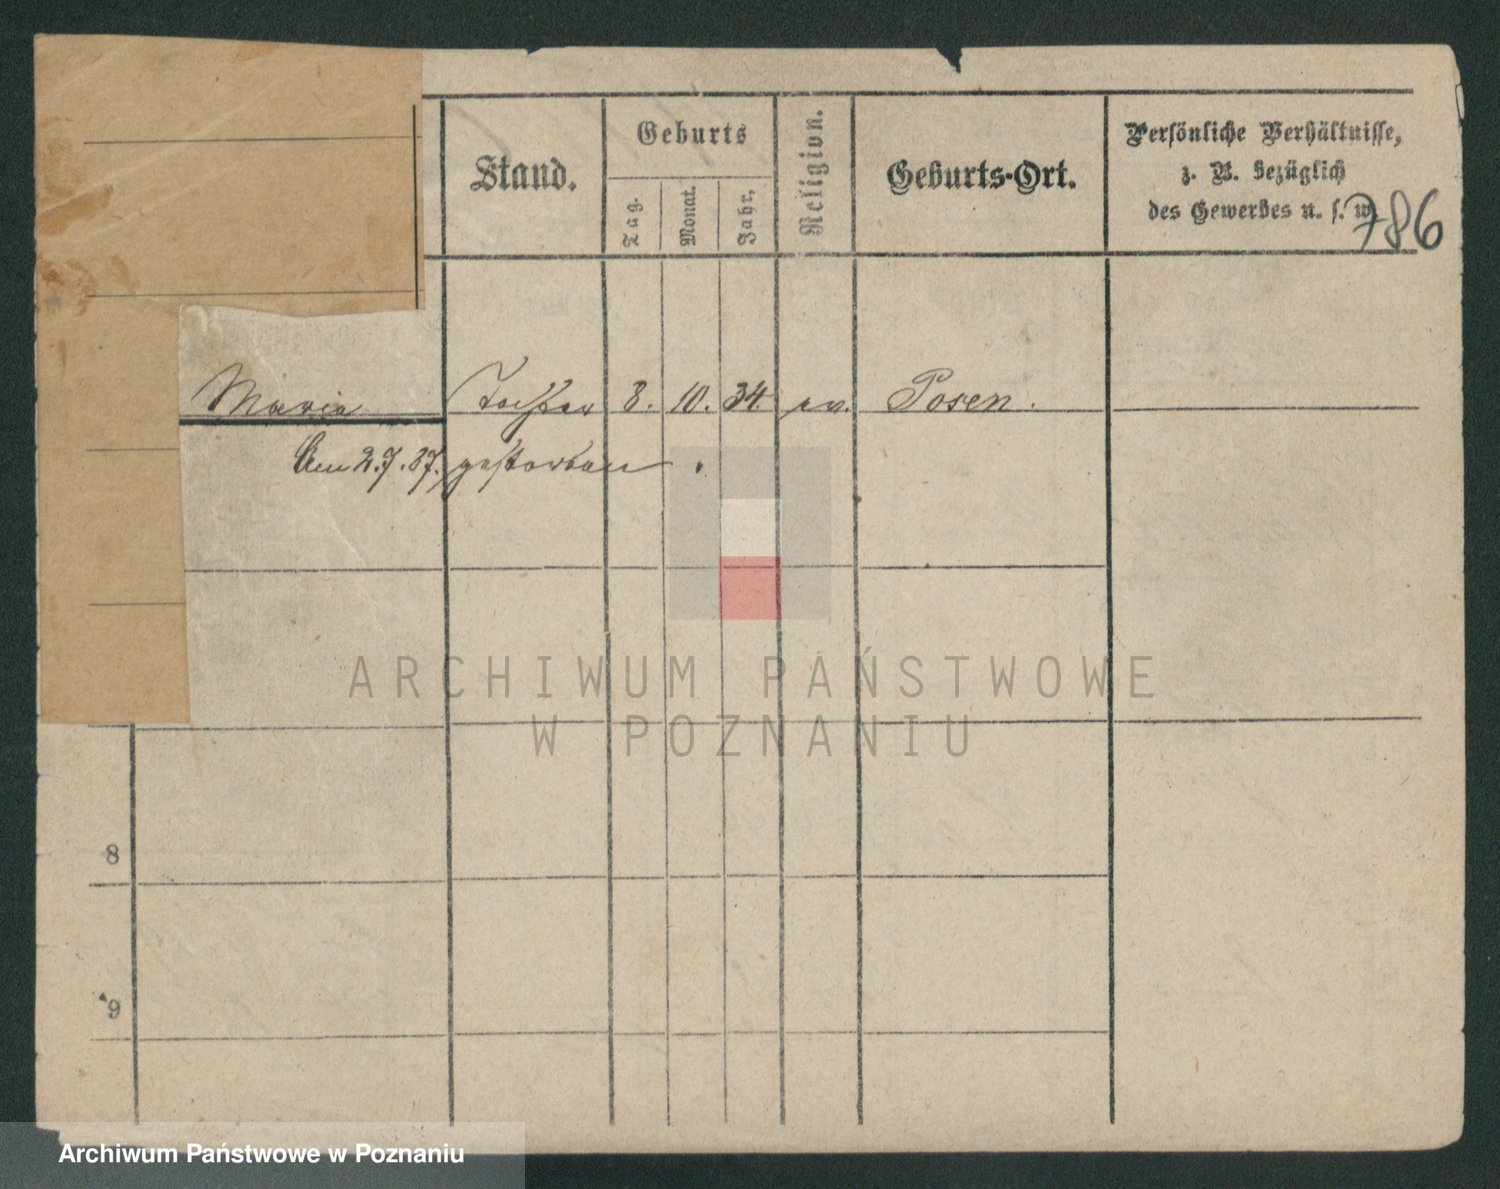 Stand.
Geburts
Tag.
Monat.
Jahr.
Religion.
Geburts-Ort.
Persönliche Verhältnisse,
z. B. bezüglich
des Gewerbes u. s. w.
786
Maria Tochter 8. 10. 34. ev. Posen.
Am 2.7.37. gestorben.
ARCHIWUM PAŃSTWOWE
W POZNANIU
8
9
Archiwum Państwowe w Poznaniu